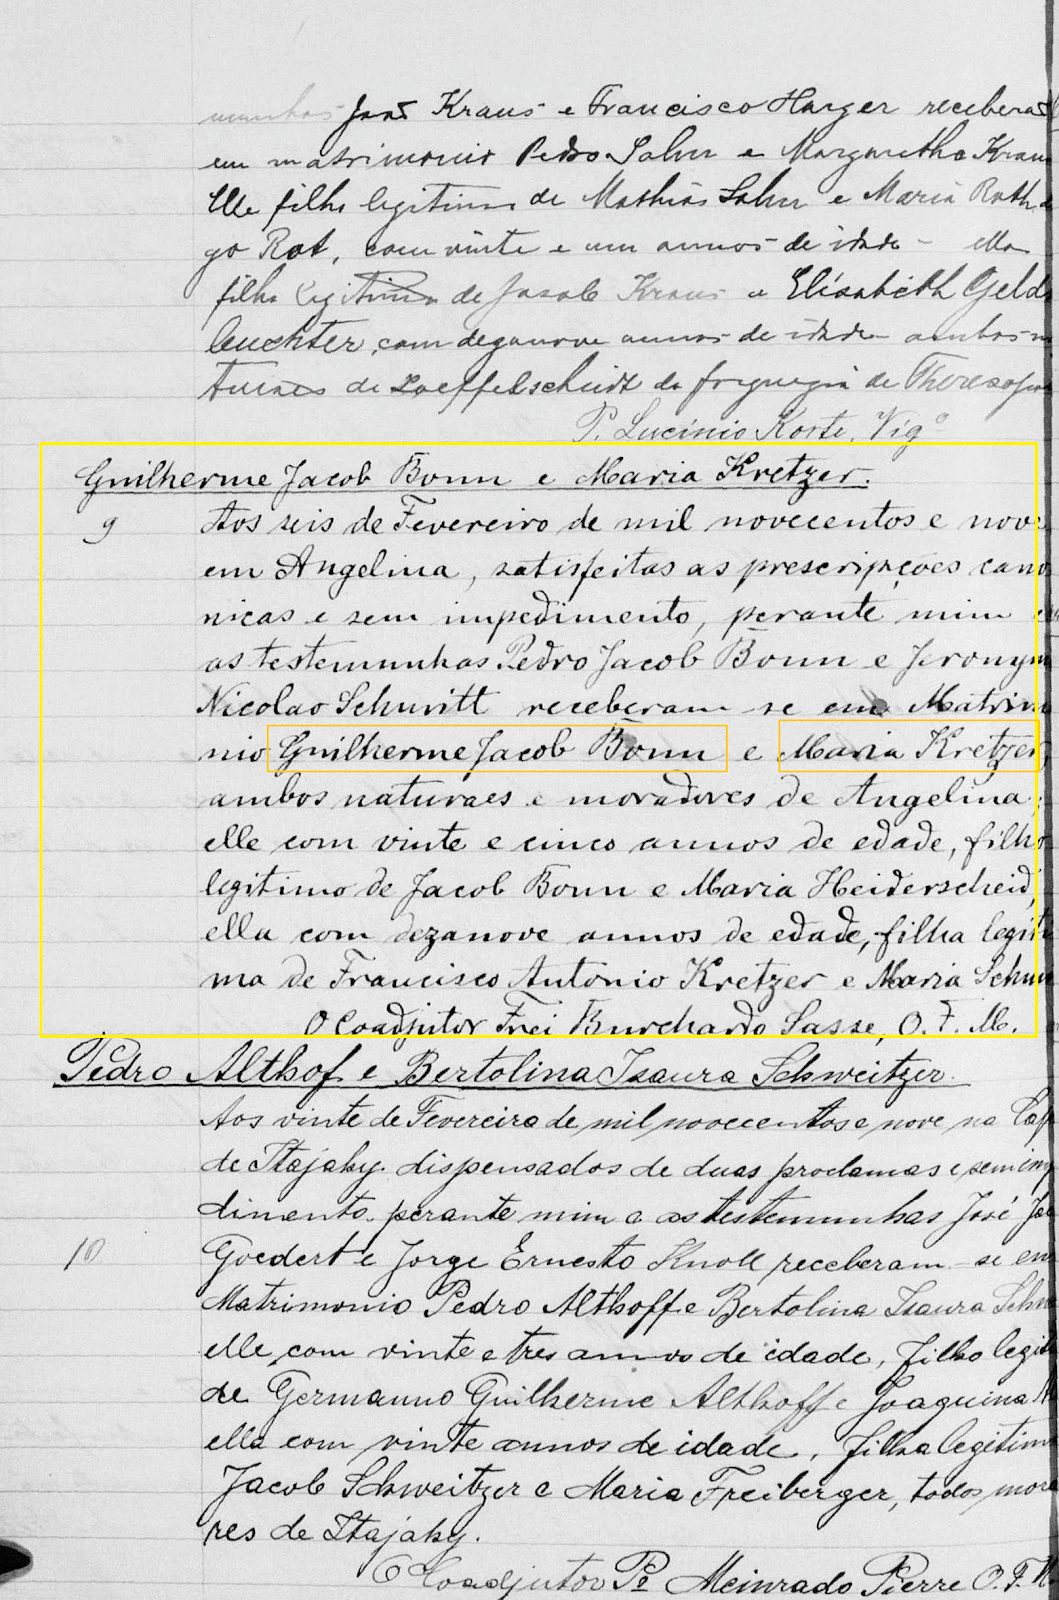 munhas João Kraus e Francisco Harger recebera
em matrimonio Pedro Sahn e Margaretha Krau
Elle filho legitimo de Mathias Sahn e Maria Roth
go Rot, com vinte e um annos de idade - ella
filha legitima de Jacob Kraus e Elisabeth Geld
leuchter, com deganove annos de idade ambos n
turaes de Loeffelscheidt da freguezia de Theresopo
P. Lucinio Korte, Vigº
Guilherme Jacob Bonn e Maria Kretzer.
9 Aos seis de Fevereiro de mil novecentos e nove
em Angelina, satisfeitas as prescripções cano
nicas e sem impedimento, perante mim e
as testemunhas Pedro Jacob Bonn e Jeronym
Nicolao Schmitt receberam se em Matrim
nio Guilherme Jacob Bonn e Maria Kretzer,
ambos naturaes e moradores de Angelina;
elle com vinte e cinco annos de edade, filho
legitimo de Jacob Bonn e Maria Heiderscheid,
ella com dezanove annos de edade, filha legiti
ma de Francisco Antonio Kretzer e Maria Schm
O Coadjutor Frei Burchardo Sasse, O. F. M.
Pedro Althof e Bertolina Isaura Schweitzer.
Aos vinte de Fevereiro de mil novecentos e nove na Cap
de Itajahy. dispensados de duas proclamas e sem im
dimento. perante mim e as testemunhas José Ja
10 Goedert e Jorge Ernesto Knoll receberam-se em
Matrimonio Pedro Althoff e Bertolina Isaura Schw
elle com vinte e tres annos de idade, filho legit
de Germanno Guilherme Althoff e Joaquina
ella com vinte annos de idade, filha legitima
Jacob Schweitzer e Maria Freiberger, todos mora
res de Itajahy.
O Coadjutor Pe Meinrado Pierre O. F. M.